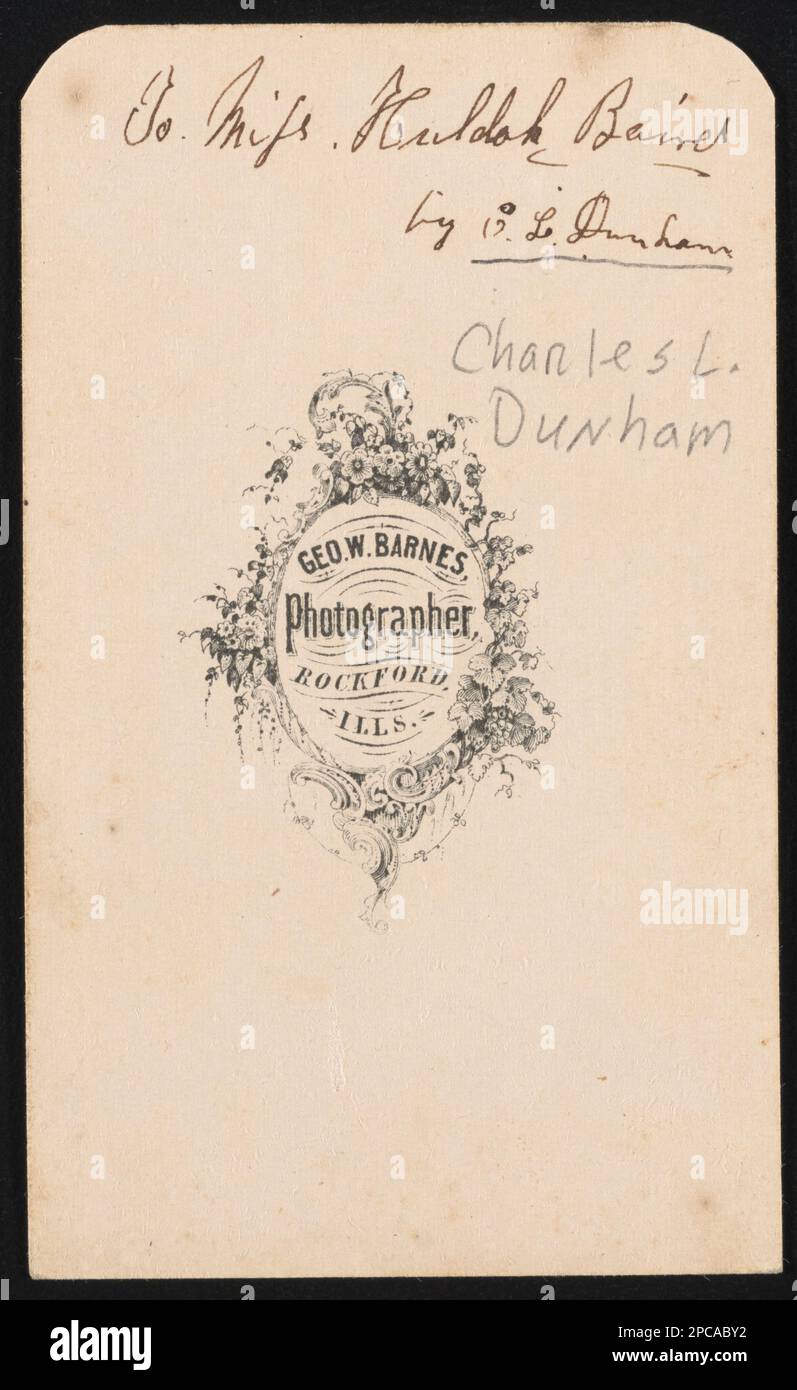 To. Miss. Huldah Baird
by C. L. Dunham
Charles L.
Dunham
GEO. W. BARNES,
Photographer,
ROCKFORD,
ILLS.
alamy
alamy
Image ID: 2PCABY2
www.alamy.com